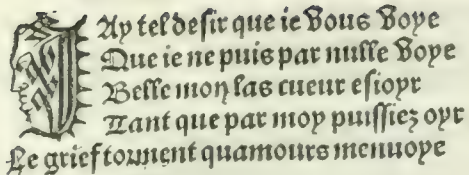 JAy tel desir que ie vous voye
Que ie ne puis par nulle voye
Belle mon las cueur esioyr
Tant que par moy puissiez oyr
Le grief torment quamours menuoye